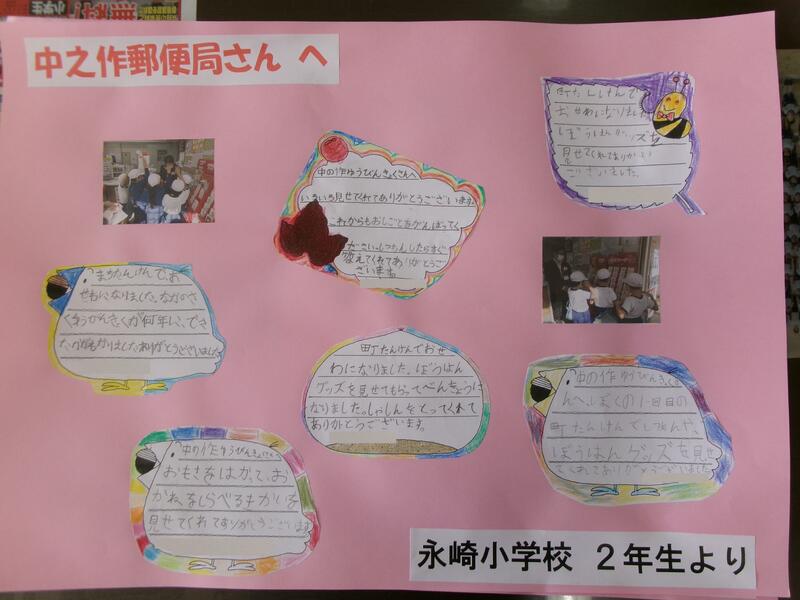 中之作郵便局さん へ
町たんけんで
おせわになりました
ぼうはんグッズを
見せてくれてありがとう
ございました。
中の作ゆうびんきょくさんへ
いろいろ見せてくれてありがとうございます。
これからもおしごとをがんばってく
ださい。しつもんしたらすぐ
答えてくれてありがとうご
ざいます。
まちたんけんで、お
せわになりました。なかのさ
くゆうびんきょくが何年に、でき
た、かがわかりました。ありがとうございました
町たんけんでおせ
わになりました。ぼうはん
グッズを見せてもらってべんきょうに
なりました。しゃしんをとってくれて
ありがとうございます。
中の作ゆうびんきょくさ
んへ、ぼくの1回目の
町たんけんでしつもんや、
ぼうはんグッズを見せ
てくれてありがとうございました
中の作ゆうびんきょく
おもさをはかって、お
かねをしらべるきかいを
見せてくれてありがとうございます
永崎小学校 2年生より